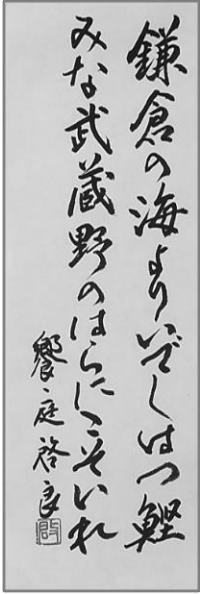 鎌倉の海よりいでしはつ鰹
みな武蔵野のはらにこそいれ
饗庭啓良
啓